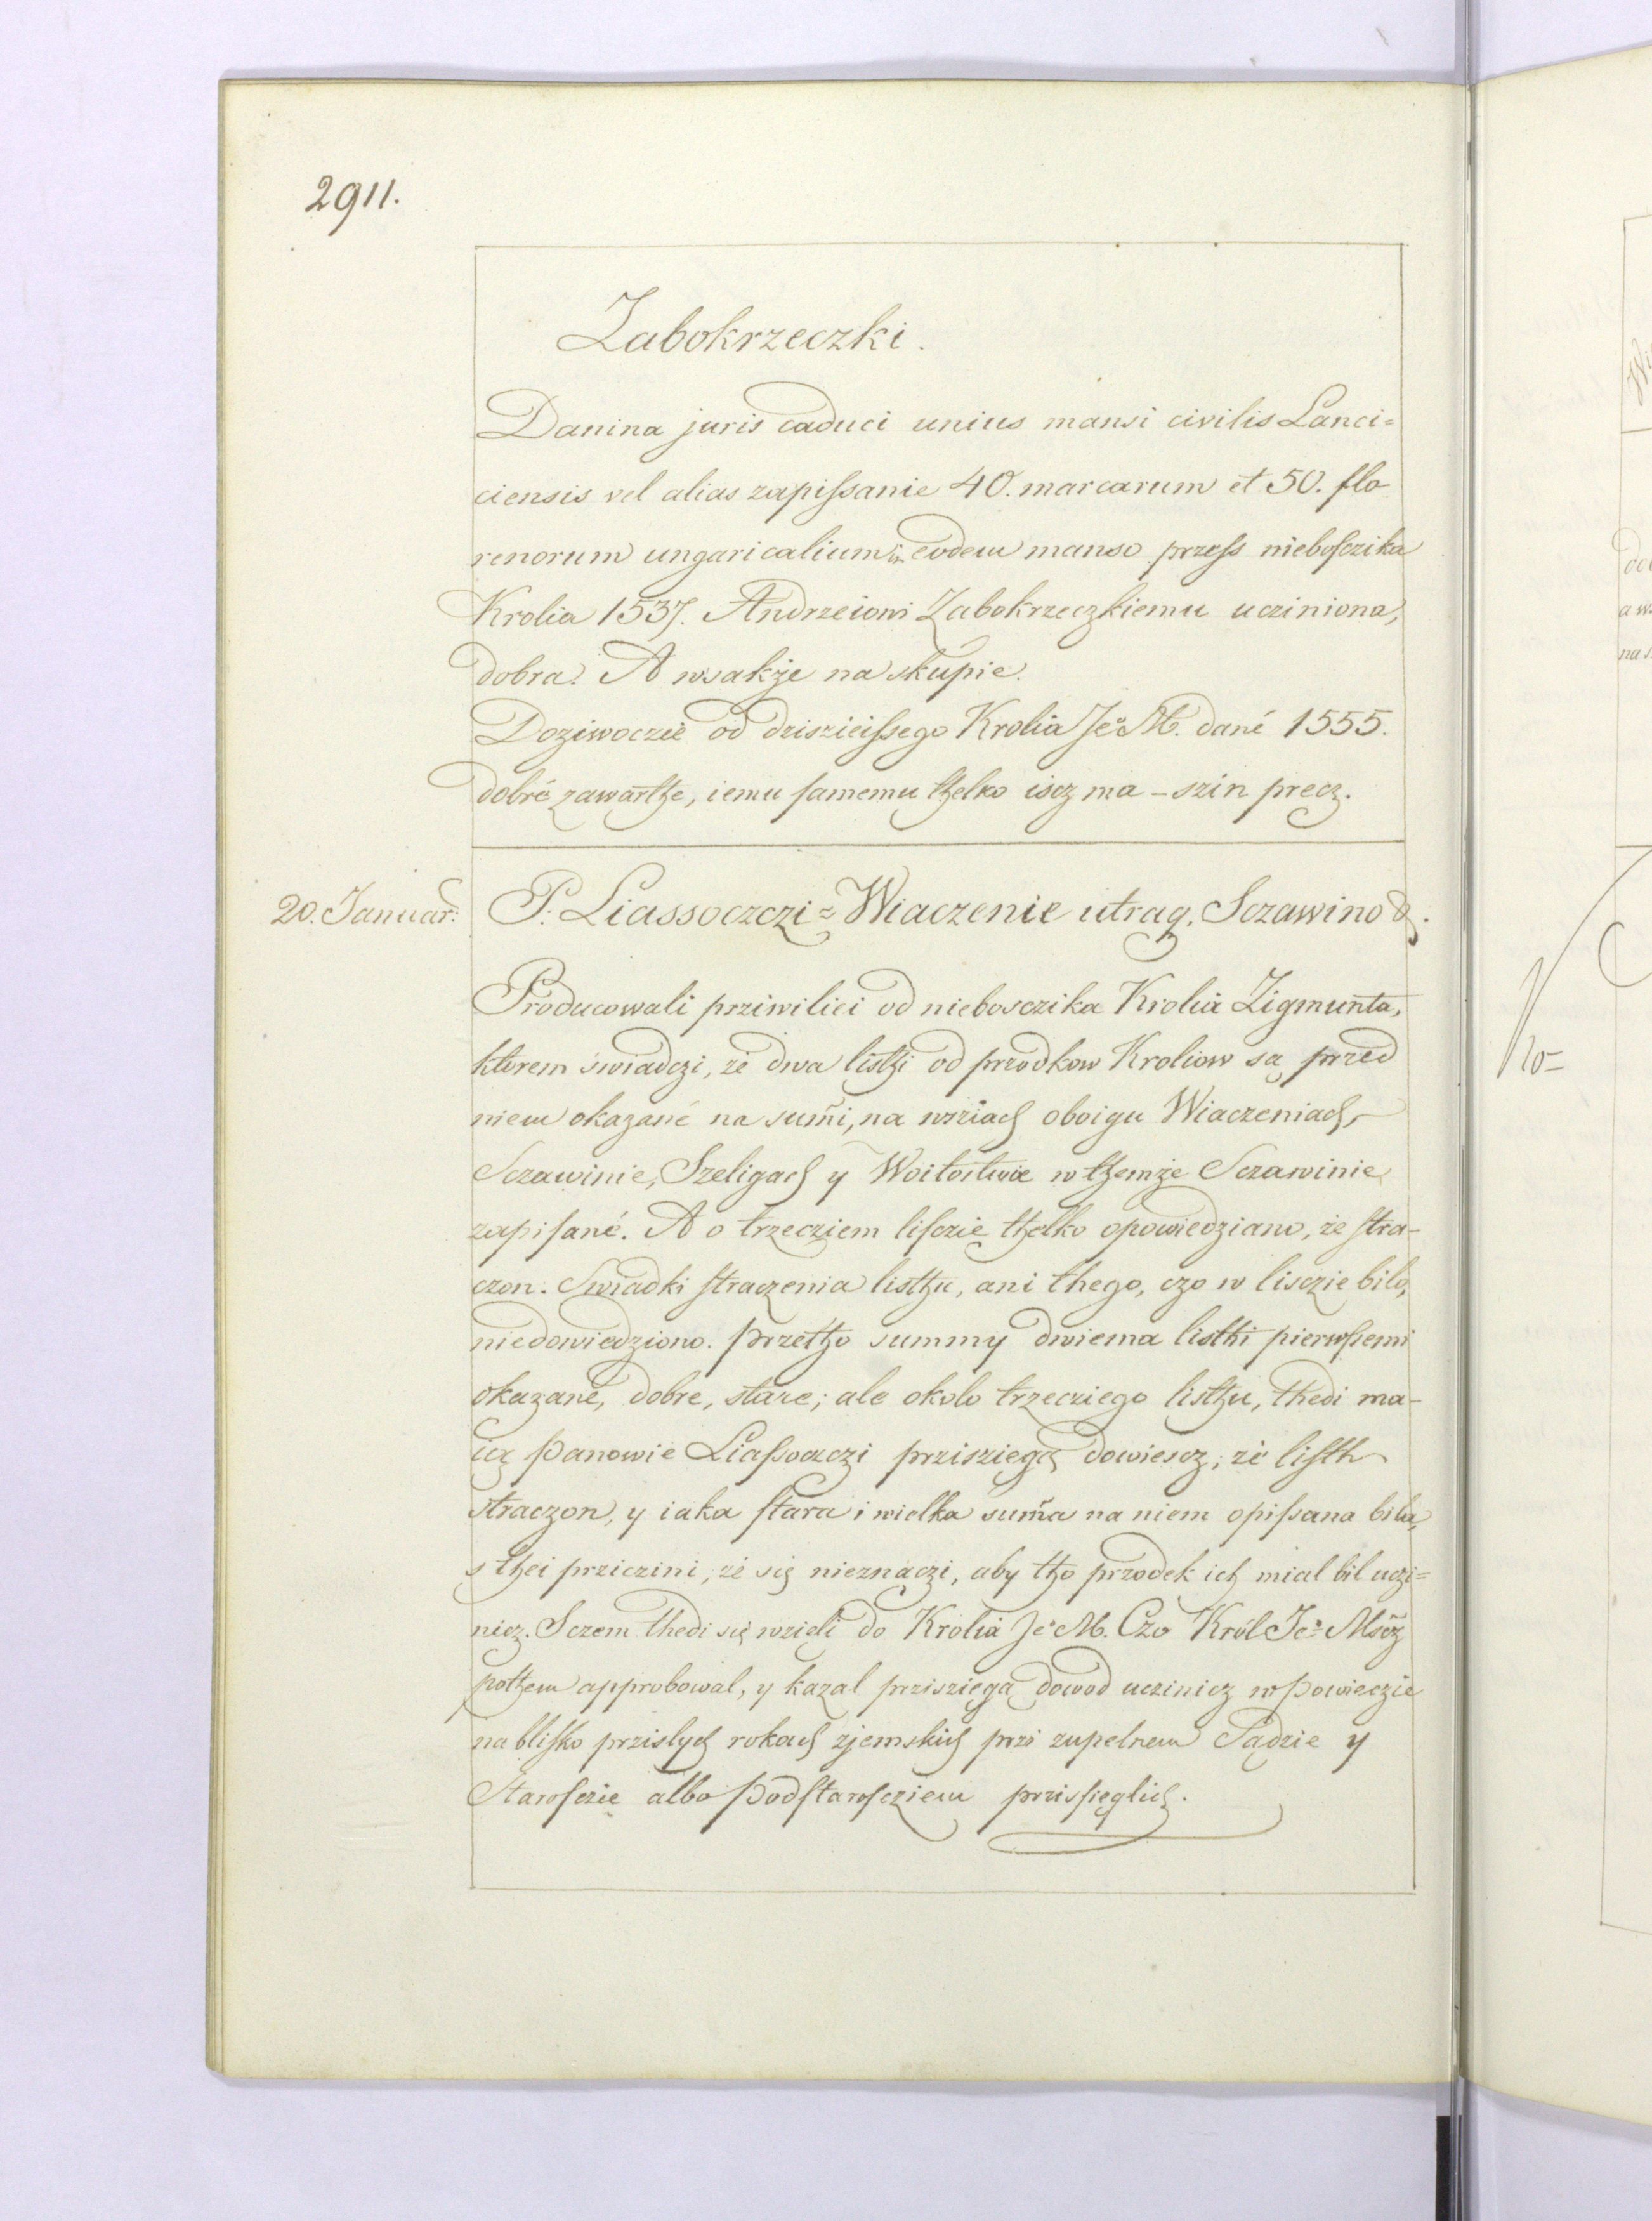 2911.
Zabokrzeczki.
Danina juris caduci unius mansi civilis Lanci=
ciensis vel alias zapiſsanie 40. marcarum et 50. flo-
renorum ungaricalium in eodem manso przeſs nieboſczika
Krolia 1537. Andrzeiowi Zabokrzeczkiemu ucziniona,
dobra. A wsakże na skupie.
Doziwoczie od dziszieiſsego Krolia Je° M. dané 1555.
dobré zawarthe, iemu ſamemu thelko iscz ma – szin precz.
20. Januar: P. Liassoczczi = Wiaczenie utraq. Sczawino &.
Producowali prziwiliei od niebosczika Krolia Zigmunta,
ktorem swiadczi, ze dwa listhi od przodkow Kroliow są przed
niem okazané na sum̃i, na wsiach oboigu Wiaczeniach,
Sczawinie, Szeligach y Woitostwie w themże Sczawinie
zapiſané. A o trzecziem liſczie thelko opowiedziano, że ſtra-
czon. Swiadki ſtraczenia listhu, ani thego, czo w lisczie bilo,
niedowiedziono. przetho summy dwiema listhi pierwſsemi
okazané, dobre, stare; ale okolo trzecziego listhu, thedi ma-
ią panowie Liaſsoczczi prziszięgą dowiescz, że liſth
straczon, y iaka ſtara i wielka sum̃a na niem opiſsana bila,
s thei prziczini, że się nieznaczi, aby tho przodek ich mial bil uczi=
nicz. Sczem thedi się wzięli do Krolia Je° M. Czo Król Je° Mscz
pothem approbowal, y kazal prziszięgą dowod uczinicz w powieczie
na bliſko przislych rokach zjemskich przi zupelnem Sądzie y
Staroſczie albo podſtaroſcziem przisſięglich.